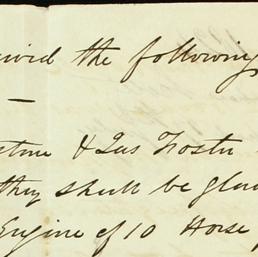 the following
—
& Jas Foster
they shall be glad
Engine of 10 Horse